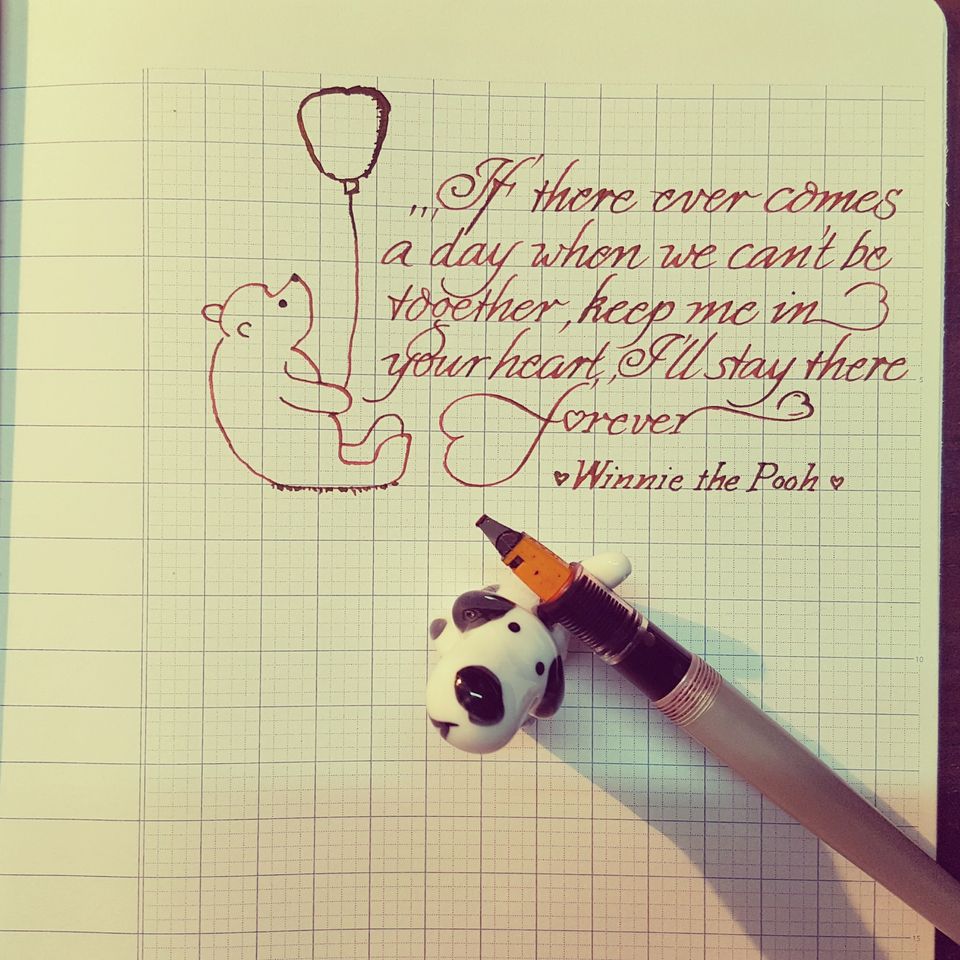 ,,,If there ever comes
a day when we can't be
together, keep me in
your heart, I'll stay there
forever
♥Winnie the Pooh♥
5
10
15